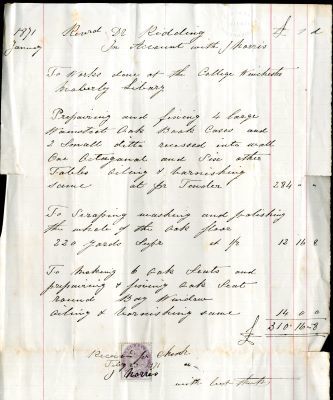 1871 Revd Dr Ridding £ s d
January In Account with J Norris
To Works done at the College Winchester
Moberly Library
Preparing and fixing 4 large
Wainscot Oak Book Cases and
2 Small ditto recessed into wall
One Octagonal and Six other
Tables Oiling & varnishing
same at pr Tender 284 " "
To Scraping washing and polishing
the whole of the Oak floor
220 yards Supr at 12 16 8
To Making 6 Oak Seats and
preparing & fixing Oak Seat
round Bay Window
Oiling & varnishing same 14 0 0
£ 310 16 8
Received pr Check
1871
J Norris
with best thanks